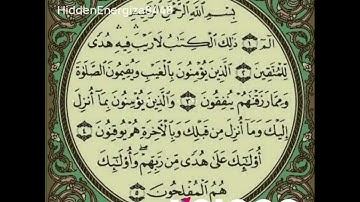 HiddenEnergize
بِسْمِ اللَّهِ الرَّحْمَٰنِ الرَّحِيمِ
الٓمٓ ١ ذَٰلِكَ الْكِتَٰبُ لَا رَيْبَ فِيهِ هُدًى
لِّلْمُتَّقِينَ ٢ الَّذِينَ يُؤْمِنُونَ بِالْغَيْبِ وَيُقِيمُونَ الصَّلَوٰةَ
وَمِمَّا رَزَقْنَٰهُمْ يُنفِقُونَ ٣ وَالَّذِينَ يُؤْمِنُونَ بِمَا أُنزِلَ
إِلَيْكَ وَمَا أُنزِلَ مِن قَبْلِكَ وَبِالْآخِرَةِ هُمْ يُوقِنُونَ ٤
أُو۟لَٰئِكَ عَلَىٰ هُدًى مِّن رَّبِّهِمْ وَأُو۟لَٰئِكَ
هُمُ الْمُفْلِحُونَ ٥